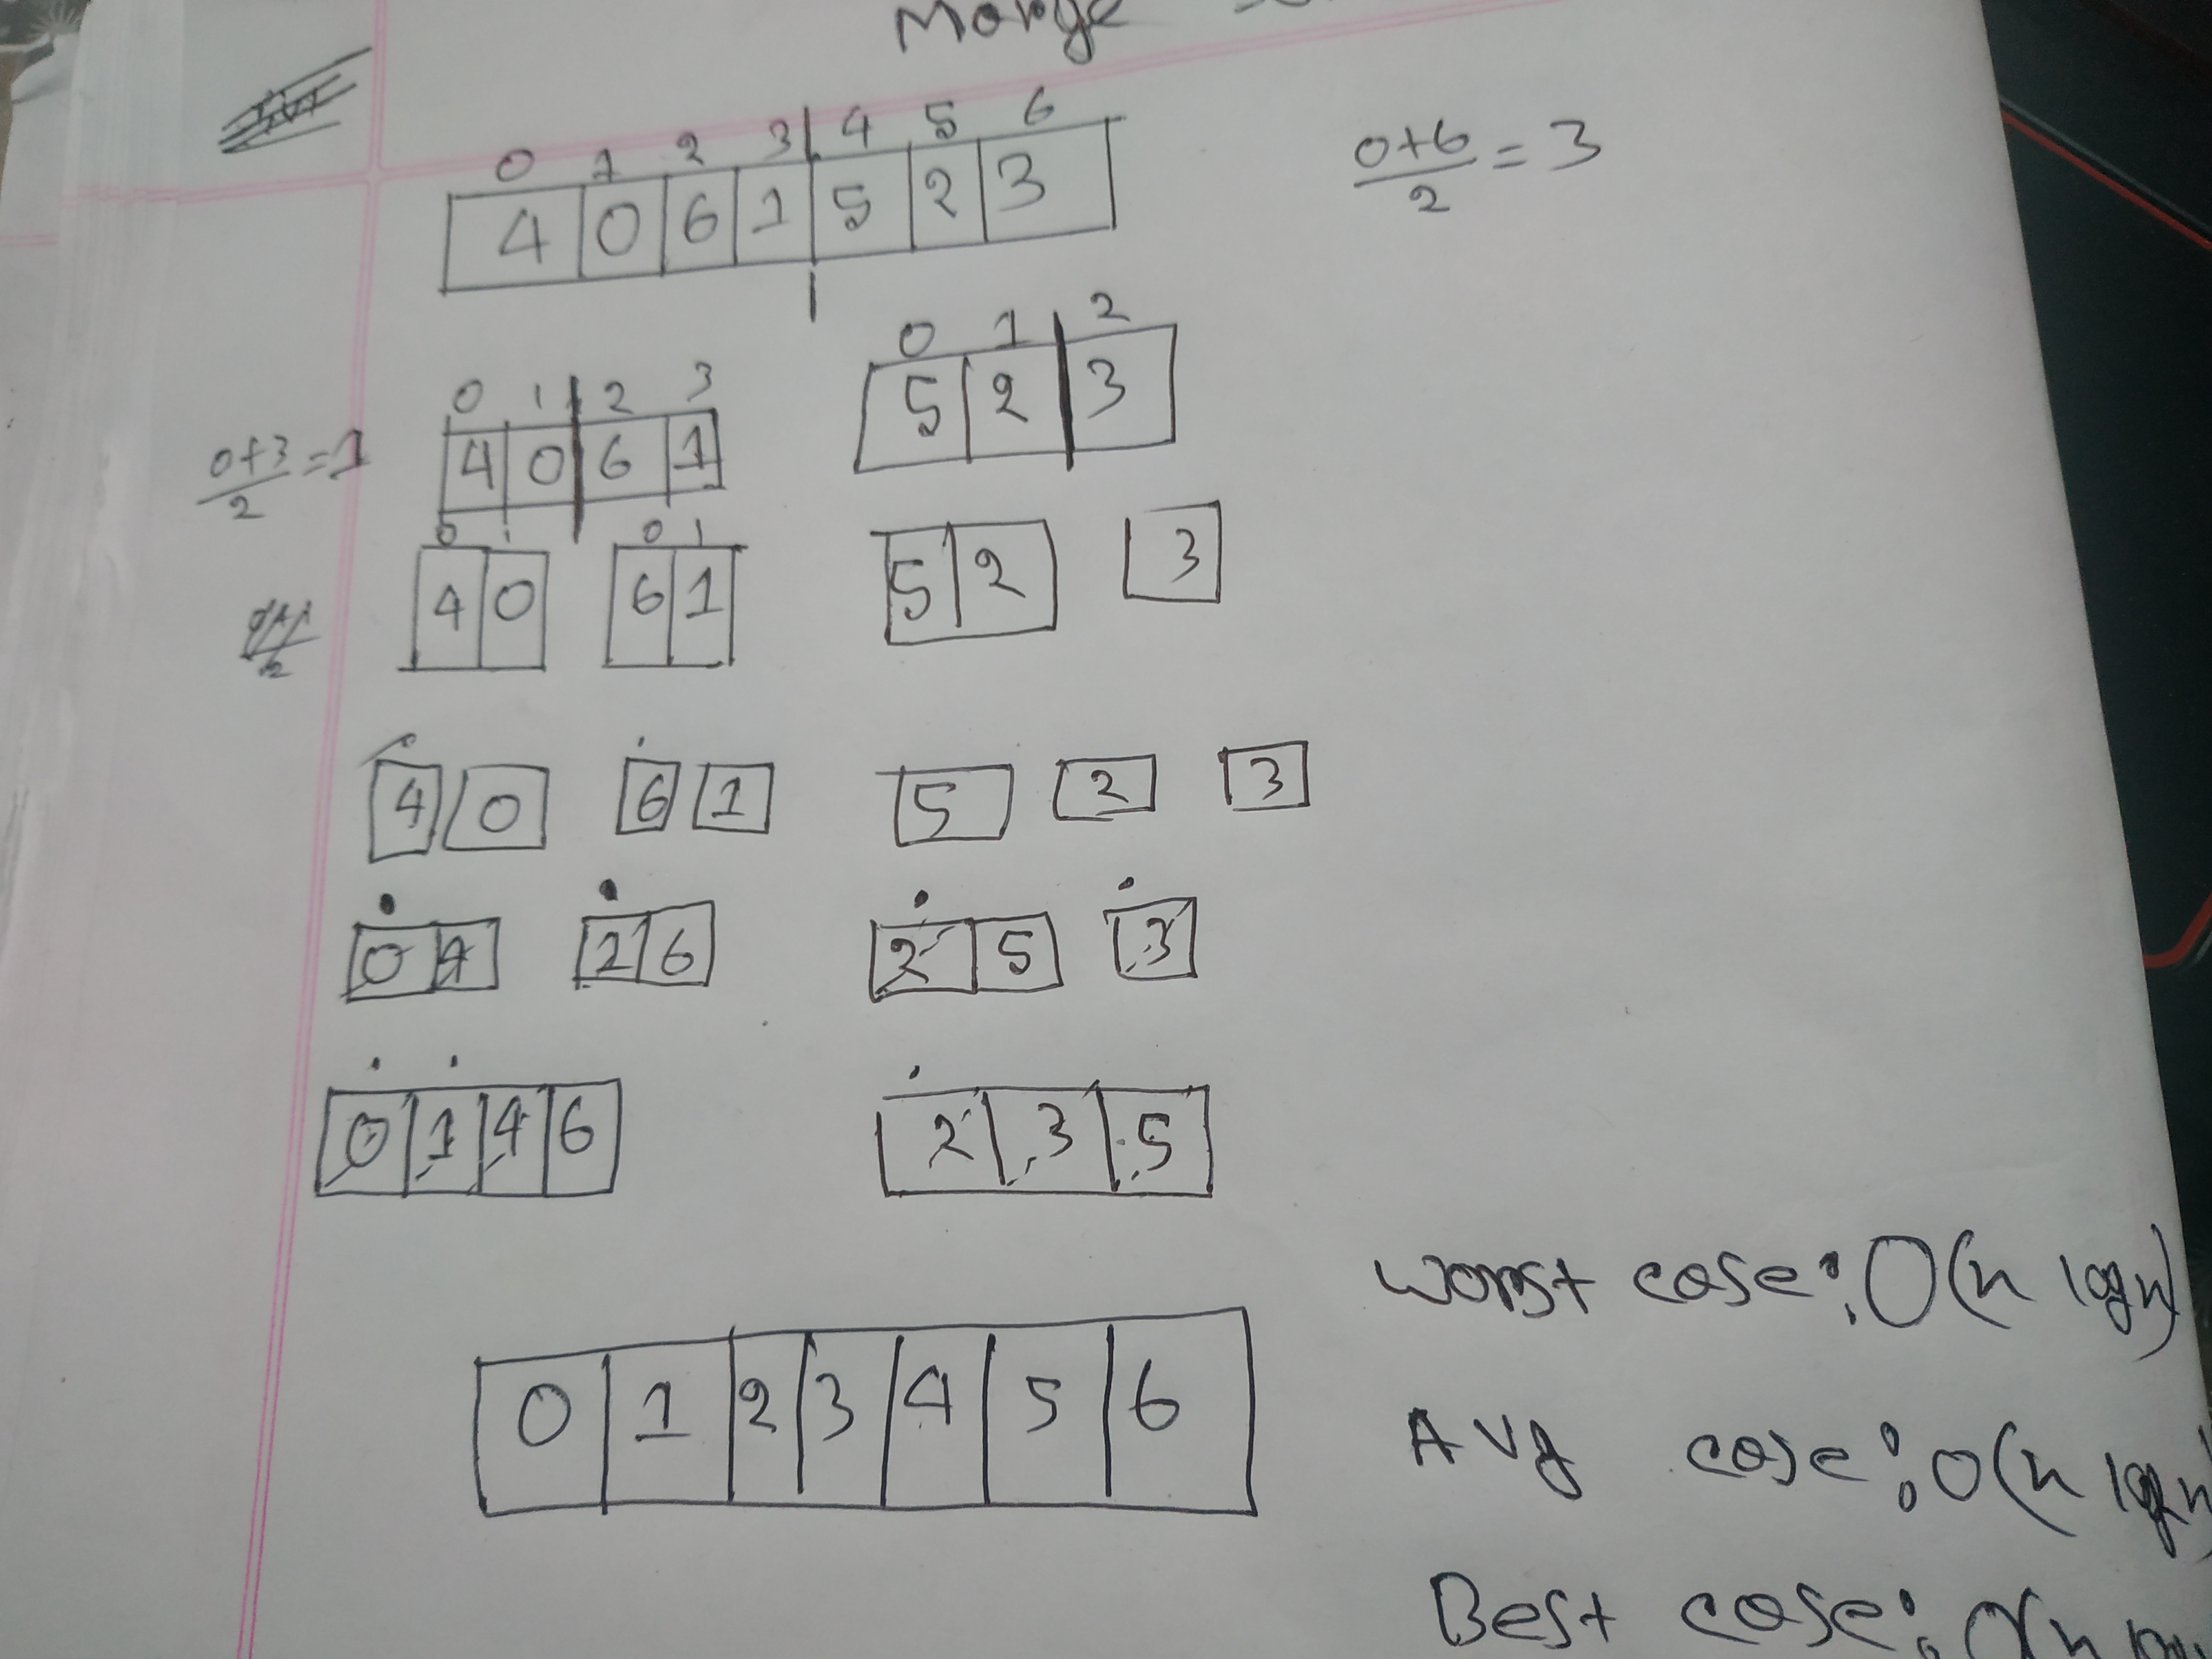 Merge
0 1 2 3 4 5 6
4 0 6 1 5 2 3
0+6/2 = 3
0 1 2 3
0 1 2
0+3/2 = 1
4 0 6 1
5 2 3
0 1
0 1
4 0
6 1
5 2
3
4 0 6 1 5 2 3
0 4
1 6
2 5
3
0 1 4 6
2 3 5
0 1 2 3 4 5 6
Worst case: O(n logn)
Avg case: O(n logn
Best case: O(n